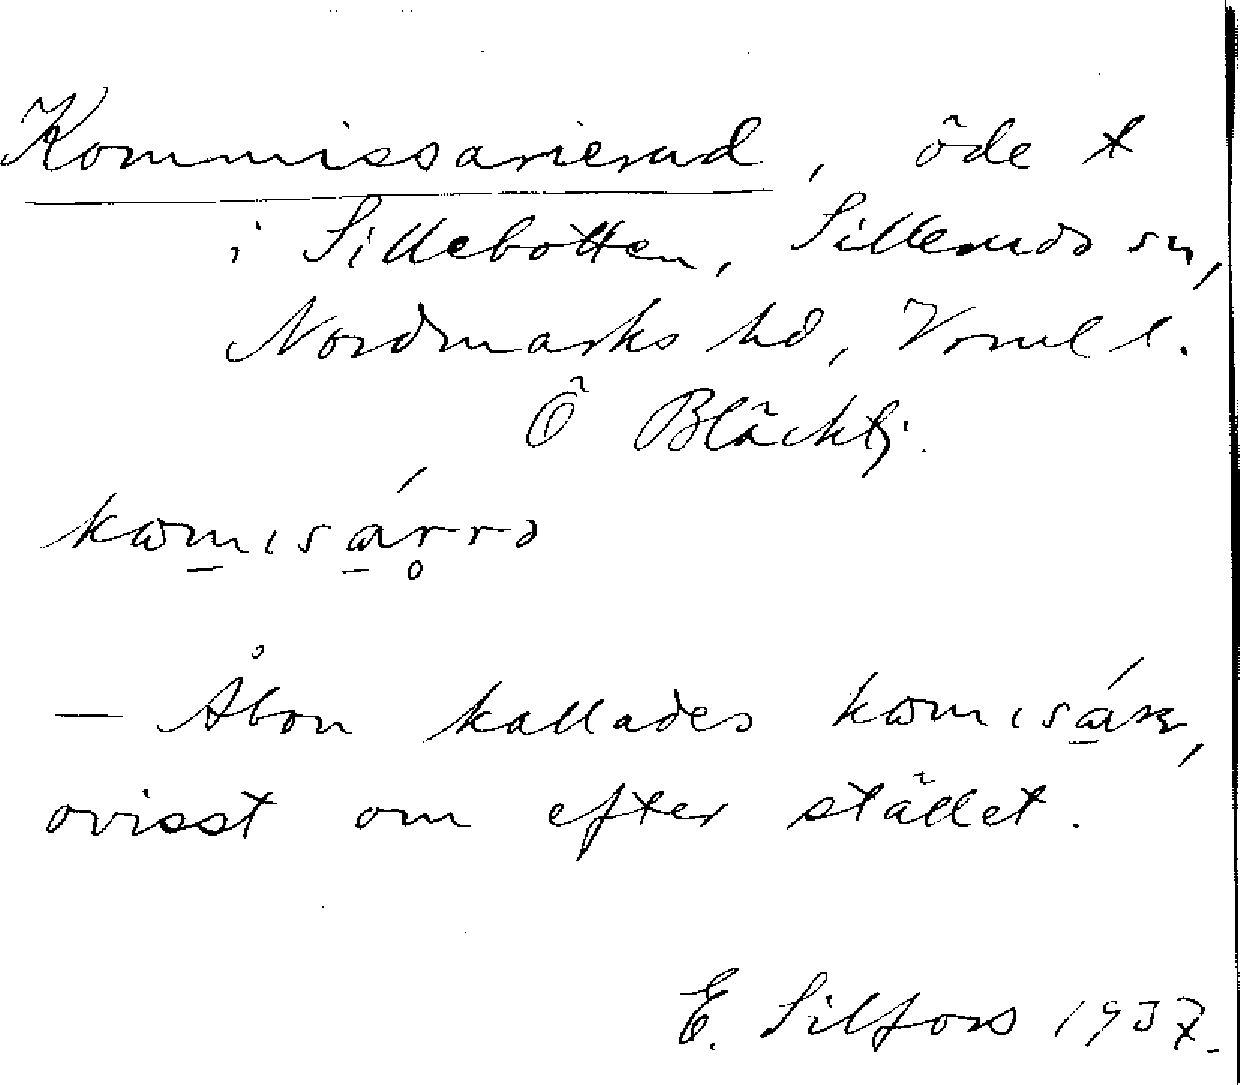 Kommissarierud, öde t
i Sillebotten, Silleruds sn,
Nordmarks hd, Vrml l.
Ö Bläcktj.
— Åbon kallades
ovisst om efter stället.
E. Silfors 1937.